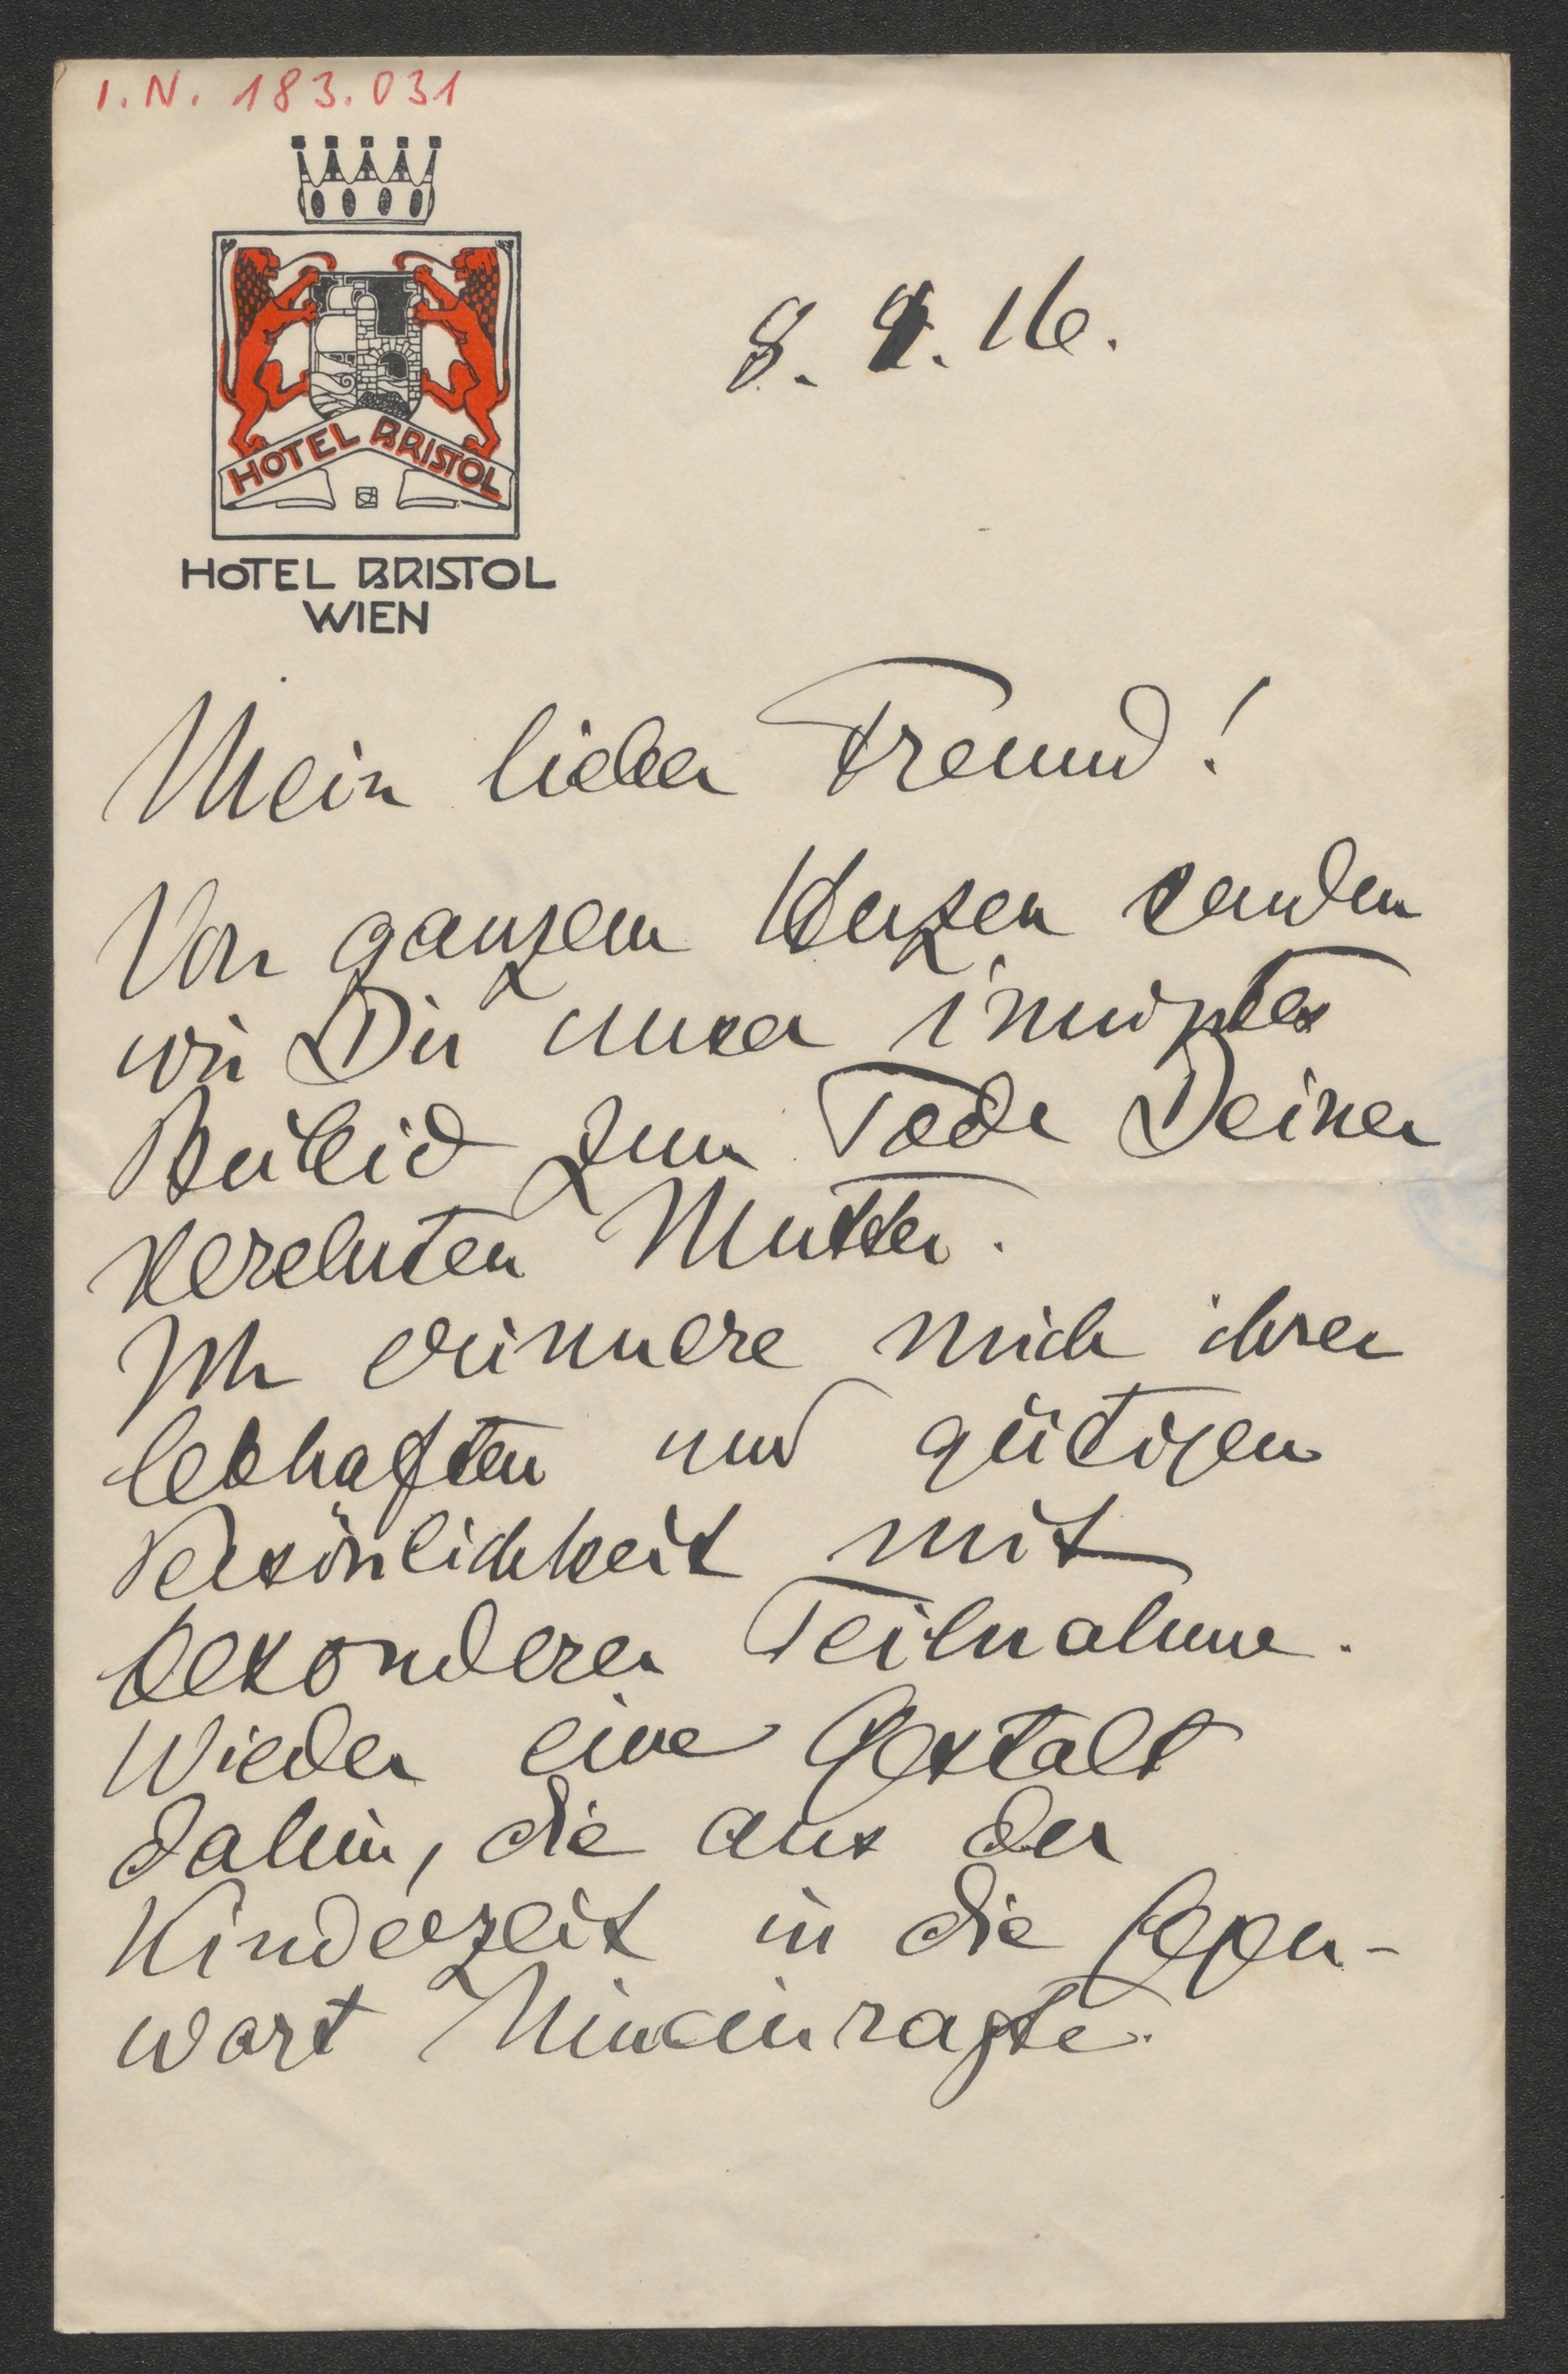 I.N. 183.031
HOTEL BRISTOL
HOTEL BRISTOL
WIEN
8. 4. 16.
Mein lieber Freund!
Von ganzem Herzen senden
wir Dir unser innigstes
Beileid zum Tode Deiner
verehrten Mutter.
Ich erinnere mich ihrer
lebhaften und gütigen
Persönlichkeit mit
besonderer Teilnahme.
Wieder eine Gestalt
dahin, die aus der
Kinderzeit in die Gegen-
wart hineinragte.